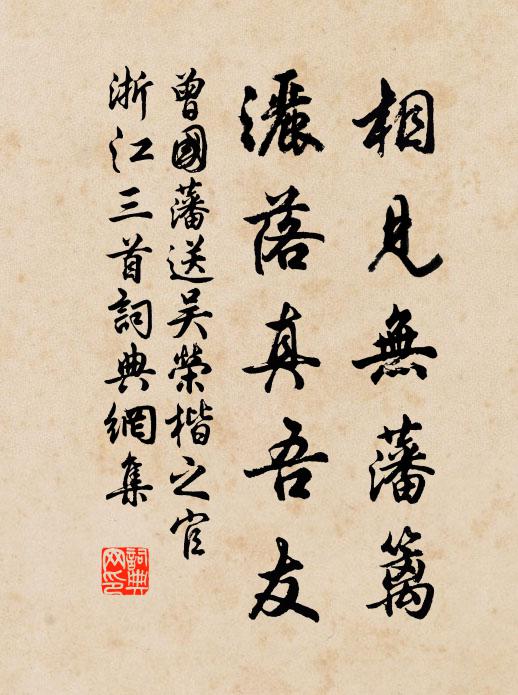 相見無藩籬
灑落真吾友
曾國藩送吳榮楷之官
浙江三首詞典網集
詞典
网印